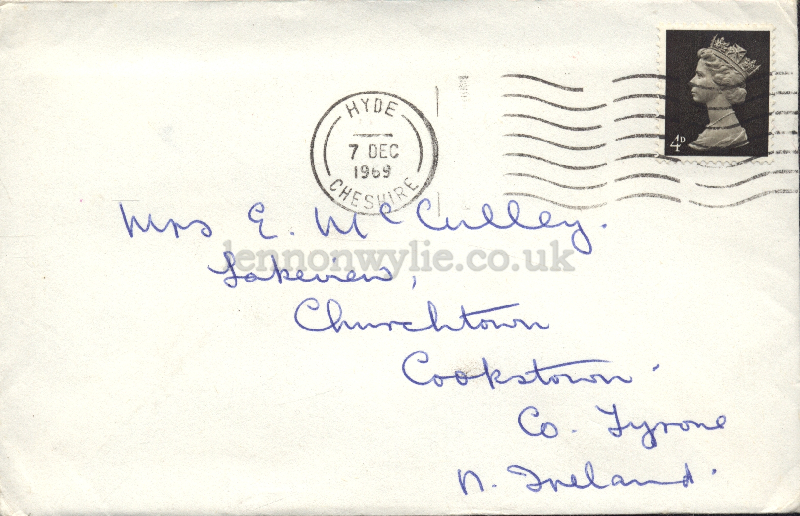 HYDE
7 DEC
1969
CHESHIRE
4D
Mrs E. McCulley.
lennonwylie.co.uk
Lakeview,
Churchtown
Cookstown.
Co. Tyrone
N. Ireland.